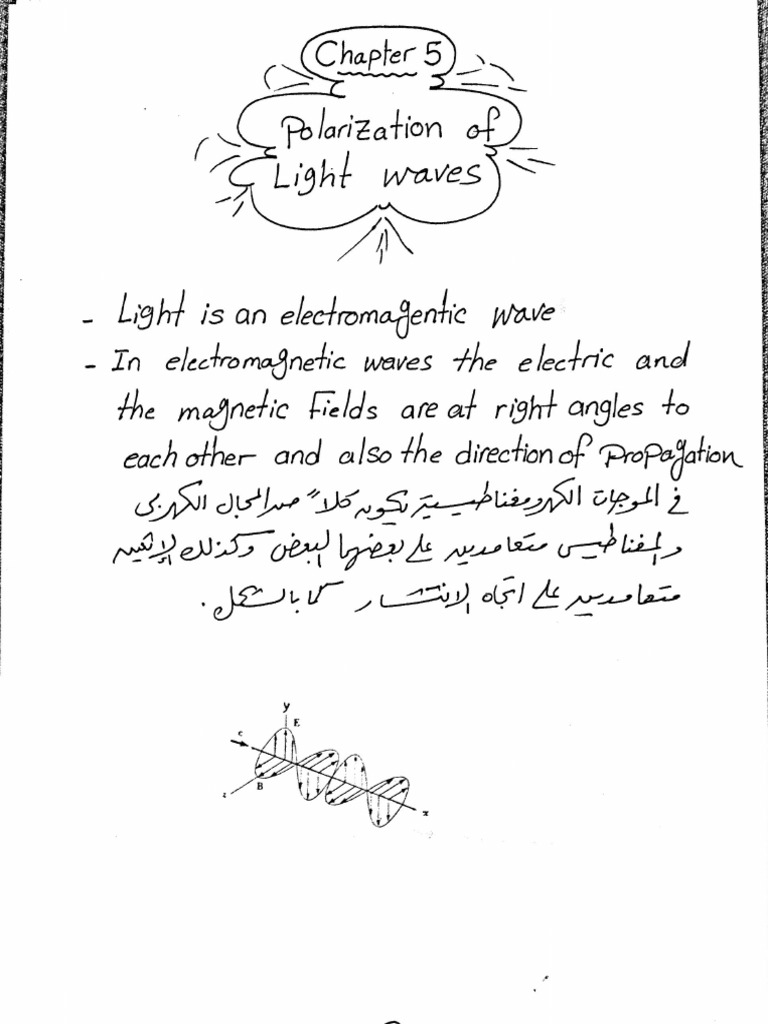 Chapter 5
Polarization of
Light waves
- Light is an electromagentic wave
- In electromagnetic waves the electric and
the magnetic Fields are at right angles to
each other and also the direction of Propagation
في الموجات الكهرومغناطيسية تكون كلاً من المجال الكهربى
والمغناطيسى متعامدين على بعضهما البعض وكذلك الإثنين
متعامدين على اتجاه الانتشار كما بالشكل.
y
E
c
B
z
x